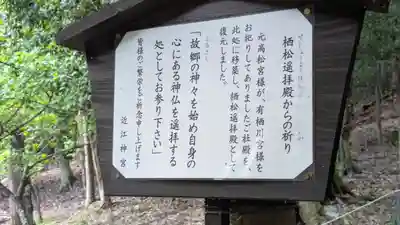 栖松遥拝殿からの祈り
元高松宮様が、有栖川宮様を
お祀りしてありましたご社殿を、
此処に移築し、栖松遥拝殿として
復元しました。
「故郷の神々を始め自身の
心にある神仏を遥拝する
処としてお参り下さい」
皆様のご繁栄をご祈念申し上げます
近江神宮